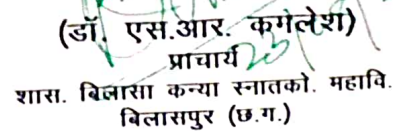 (डॉ. एस.आर. कमलेश)
प्राचार्य
शास. बिलासा कन्या स्नातको. महावि.
बिलासपुर (छ.ग.)